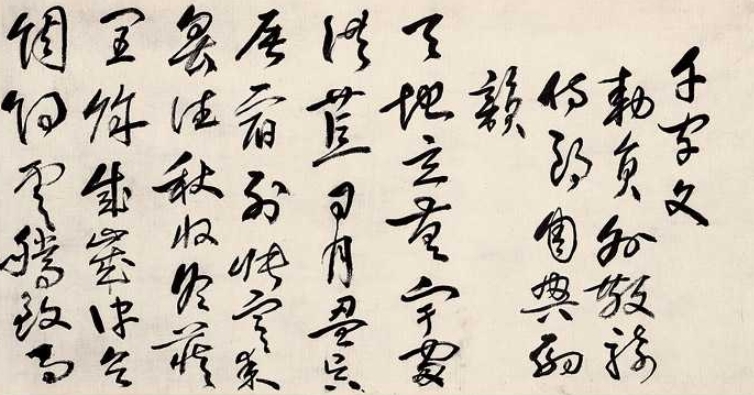 千字文
勅員外散騎
侍郎周興嗣
韻
天地玄黃宇宙
洪荒日月盈昃
辰宿列張寒来
暑往秋收冬藏
閏餘成歲律呂
調陽雲騰致雨